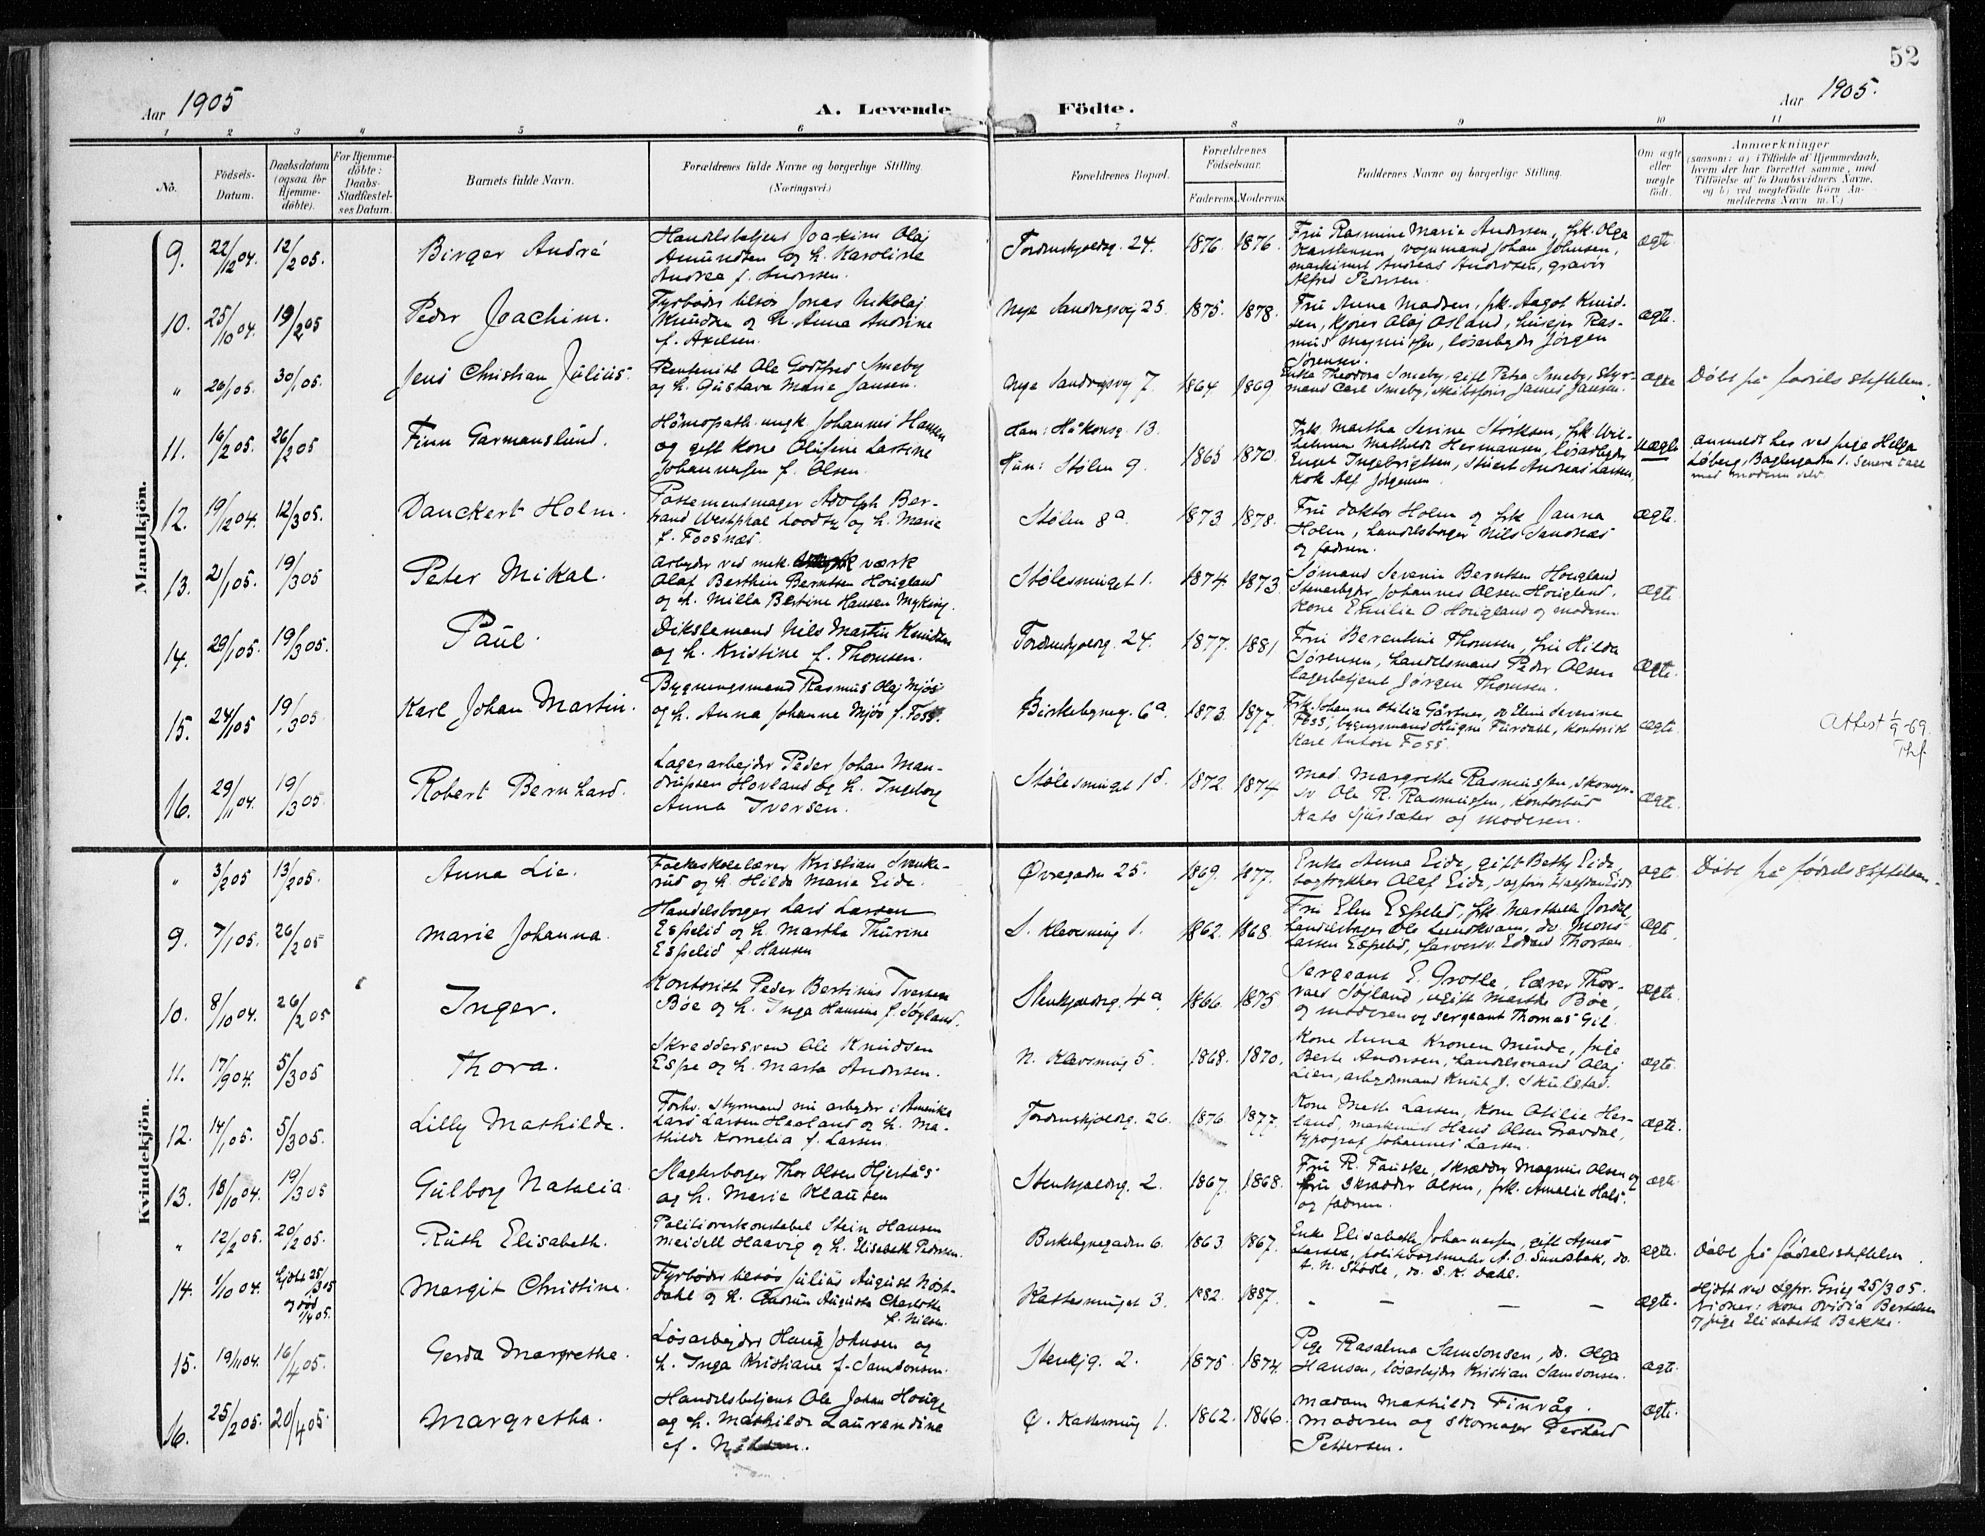 52
Aar 1905
A. Levende Födte.
Aar 1905.
1 2 3 4 5 6 7 8 9 10 11
No.
Födsels-Datum.
Daabsdatum (ogsaa for Hjemme-döbte).
For Hjemme-döbte: Daabs-Stadfæstel-ses Datum.
Barnets fulde Navn.
Forældrenes fulde Navne og borgerlige Stilling. (Næringsvei.)
Forældrenes Bopæl.
Forældrenes Födselsaar.
Faderens. Moderens.
Faddernes Navne og borgerlige Stilling.
Om ægte eller uægte födt.
Anmærkninger
(saasom: a) i Tilfælde af Hjemmedaab, hvem der har forrettet samme, med Tilföielse af to Daabsvidners Navne, og b) ved uegtefödte Börn An-melderens Navn m. V.)
Mandkjön.
9. 22/12 04. 12/2 05. Birger André
Handelsbetjent Joakim Olaj
Amundsen og h. Karoline
Andrea f. Andersen.
Tordenskjoldsg. 24. 1876. 1876.
Fru Rasmine Marie Andersen, frk. Olga
Karstensen, vognmand Johan Johnsen,
maskinist Andreas Andersen, gravör
Alfred Pedersen.
ægte.
10. 25/10 04. 19/2 05 Peder Joachim.
Fyrböder tilsös Jonas Nikolaj
Knudsen og h. Anna Andrine
f. Axelsen.
Nye Sandvigsvej 25. 1875. 1878.
Fru Anna Madsen, frk. Aagot Knud-
sen, kjörer Olaj Osland, husejer Ras-
mus Magnussen, lösarbejder Jörgen
Sörensen.
ægte.
" 26/1 05. 30/1 05. Jens Christian Julius.
Rentenist Ole Godtfred Smeby
og h. Gustava Marie Jansen.
Nye Sandvigsvej 7. 1864 1869
Enke Theodora Smeby, gift Petra Smeby, Styr-
mand Carl Smeby, Skibsförer James Jansen.
ægte
Döbt på födselsstiftelsen.
11. 16/2 05. 26/2 05 Finn Garmanslund.
Hömopath ungk. Johannes Hansen
og gift kone Olufine Lassine
Johannessen f. Olsen.
Han: Håkonsg. 13.
Hun: Stölen 9.
1865 1870.
Frk. Martha Serine Störksen, frk. Wil-
helmine Mathilde Hermansen, lösarbejder
Engel Ingebrigtsen, Stuert Andreas Lassen,
kok Alf Jörgensen.
uægte
anmeldt her ved pige Helga
Löberg, Baglergaden 1. Senere talt
med moderen selv.
12. 19/12 04. 12/3 05. Danckert Holm.
Possementmager Adolph Ber-
trand Westphal Loodtz og h. Marie
f. Foosnæs.
Stölen 8a. 1873 1878.
Fru doktor Holm og frk. Janna
Holm, handelsborger Nils Sandnæs
og faderen.
ægte.
13. 21/1 05. 19/3 05 Peter Mikal.
Arbejder ved mek. værk
Olaf Berthin Berntsen Hougland
og h. Milla Bertine Hansen Myking.
Stölesmuget 1. 1874. 1873.
Sömand Severin Berntsen Hougland
Stenarbejder Johannes Olsen Hougland,
kone Emilie O. Hougland og moderen
ægte.
14. 29/1 05. 19/3 05. Paul.
Dikslemand Nils Martin Knudsen
og h. Kristine f. Thomsen.
Tordenskjoldsg. 24. 1877. 1881
Fru Berentine Thomsen, fru Hilda
Sörensen, handelsmand Peder Olsen
lagerbetjent Jörgen Thomsen.
ægte.
15. 24/1 05 19/3 05. Karl Johan Martin.
Bygningsmand Rasmus Olaj Mjös
og h. Anna Johanne Mjös f. Foss.
Birkebeyneg. 6a. 1873. 1877.
Frk. Johanne Otilia Gärtner, do Elene Severine
Foss, bygningsmand Furdahl, kontorist
Karl Anton Foss.
ægte.
Attest 1/9-69.
Thf
16. 29/11 04. 19/3 05. Robert Bernhard.
Lagerarbejder Peder Johan Man-
drupsen Hovland og h. Ingeborg
Anna Iversen.
Stölesmuget 1d. 1872 1874
Mad. Margrethe Rasmussen, Skomager-
sv. Ole R. Rasmussen, kontorbud
Kato Sjursæter og moderen.
ægte.
Kvindekjön.
" 3/2 05 13/2 05. Anna Lie.
Folkeskolelærer Kristian Svenke-
rud og h. Hilda Marie Eide.
Øvregaden 25. 1869. 1877.
Enke Anna Eide, gift Betty Eide,
bogtrykker Olaf Eide, sagförer Halfdan Eide
ægte.
Döbt på födselsstiftelsen.
9. 7/1 05. 26/2 05 Marie Johanna.
Handelsborger Lars Larsen
Espelid og h. Martha Thurine
Espelid f. Hansen
S. Klevesmug 1. 1862. 1868.
Fru Elen Espelid, frk. Marthea Jordal,
handelsborger Ole Lundkvam, do Mons
Larsen Espelid, farversv. Edvard Thorsen
ægte.
10. 8/10 04. 26/2 05 Inger.
Kontorist Peder Bertinus Iversen
Böe og h. Inga Hanna f. Söyland.
Stenkjeldrg. 4a. 1866. 1875
Sergeant E. Grotle, lærer Thor-
vald Söyland, ugift Marthe Böe,
og moderen og sergeant Thomas Gil.
ægte.
11. 17/9 04. 5/3 05 Thora.
Skreddersvend Ole Knudsen
Espe og h. Marta Andersen.
N. Klevesmug 5. 1868. 1870.
Kone Anna Kronen Minde, pige
Berte Andersen, handelsmand Olaj
Lien, arbejdsmand Knut J. Skulstad.
ægte.
12. 14/1 05. 5/3 05. Lilly Mathilde.
Forhv. Styrmand nu arbejder i Amerika
Lars Larsen Haaland og h. Ma-
thilde Kornelia f. Larsen.
Tordenskjoldsg. 26. 1876. 1877.
Kone Mette Larsen, kone Otilie Her-
land, maskinist Hans Olsen Gravdal,
typograf Johannes Larsen.
ægte.
13. 18/10 04. 19/3 05 Gulborg Natalia.
Slagterborger Thor Olsen Hjertås
og h. Marie Klausen
Stenkjeldrg. 2. 1867. 1868.
Fru R. Fauske, skrædder Magnus Olsen og
fru skrædder Olsen, frk. Amalie Hals.
og faderen.
ægte.
" 12/2 05. 20/2 05. Ruth Elisabeth.
Politioverkonstabel Stein Hansen
Meidell Haavig og h. Elisabeth Pedersen.
Birkebeynegaden 6. 1863 1867.
Enke Elisabeth Johannessen, gift Agnes
Larsen, politivagtmester A. O. Sundbak, do.
A. N. Stödle, do. S. K. Dahl.
ægte.
Döbt på födselsstiftelsen
14. 1/10 04. hjdbt 25/3 05 og död 1/4 05. Margit Christine.
Fyrböder tilsös Julius August Næst-
dahl og h. Gudrun Augusta Charlotte
f. Nilsen.
Kattesmuget 3. 1882. 1887.
" — — — —
ægte.
Hjdbt ved sgpr. Grieg 25/3 05.
Vidner: kone Ovidia Bertelsen
og pige Elisabeth Bakke.
15. 19/11 04. 16/4 05. Gerda Margrethe.
Lösarbejder Hans Johnsen og
h. Inga Kristiane f. Samsonsen.
Stenkjg. 2. 1875. 1874.
Pge Rasalma Samsonsen, do. Olga
Hansen, lösarbejder Kristian Samsonsen.
ægte.
16. 25/2 05. 20/4 05. Margretha.
Handelsbetjent Ole Johan Houge
og h. Mathilde Laurandine
f. Nilsen.
Ø. Kattesmug 1. 1862. 1866.
Madam Mathilde Finvåg.
Moderen og skomager
Pettersen.
ægte.